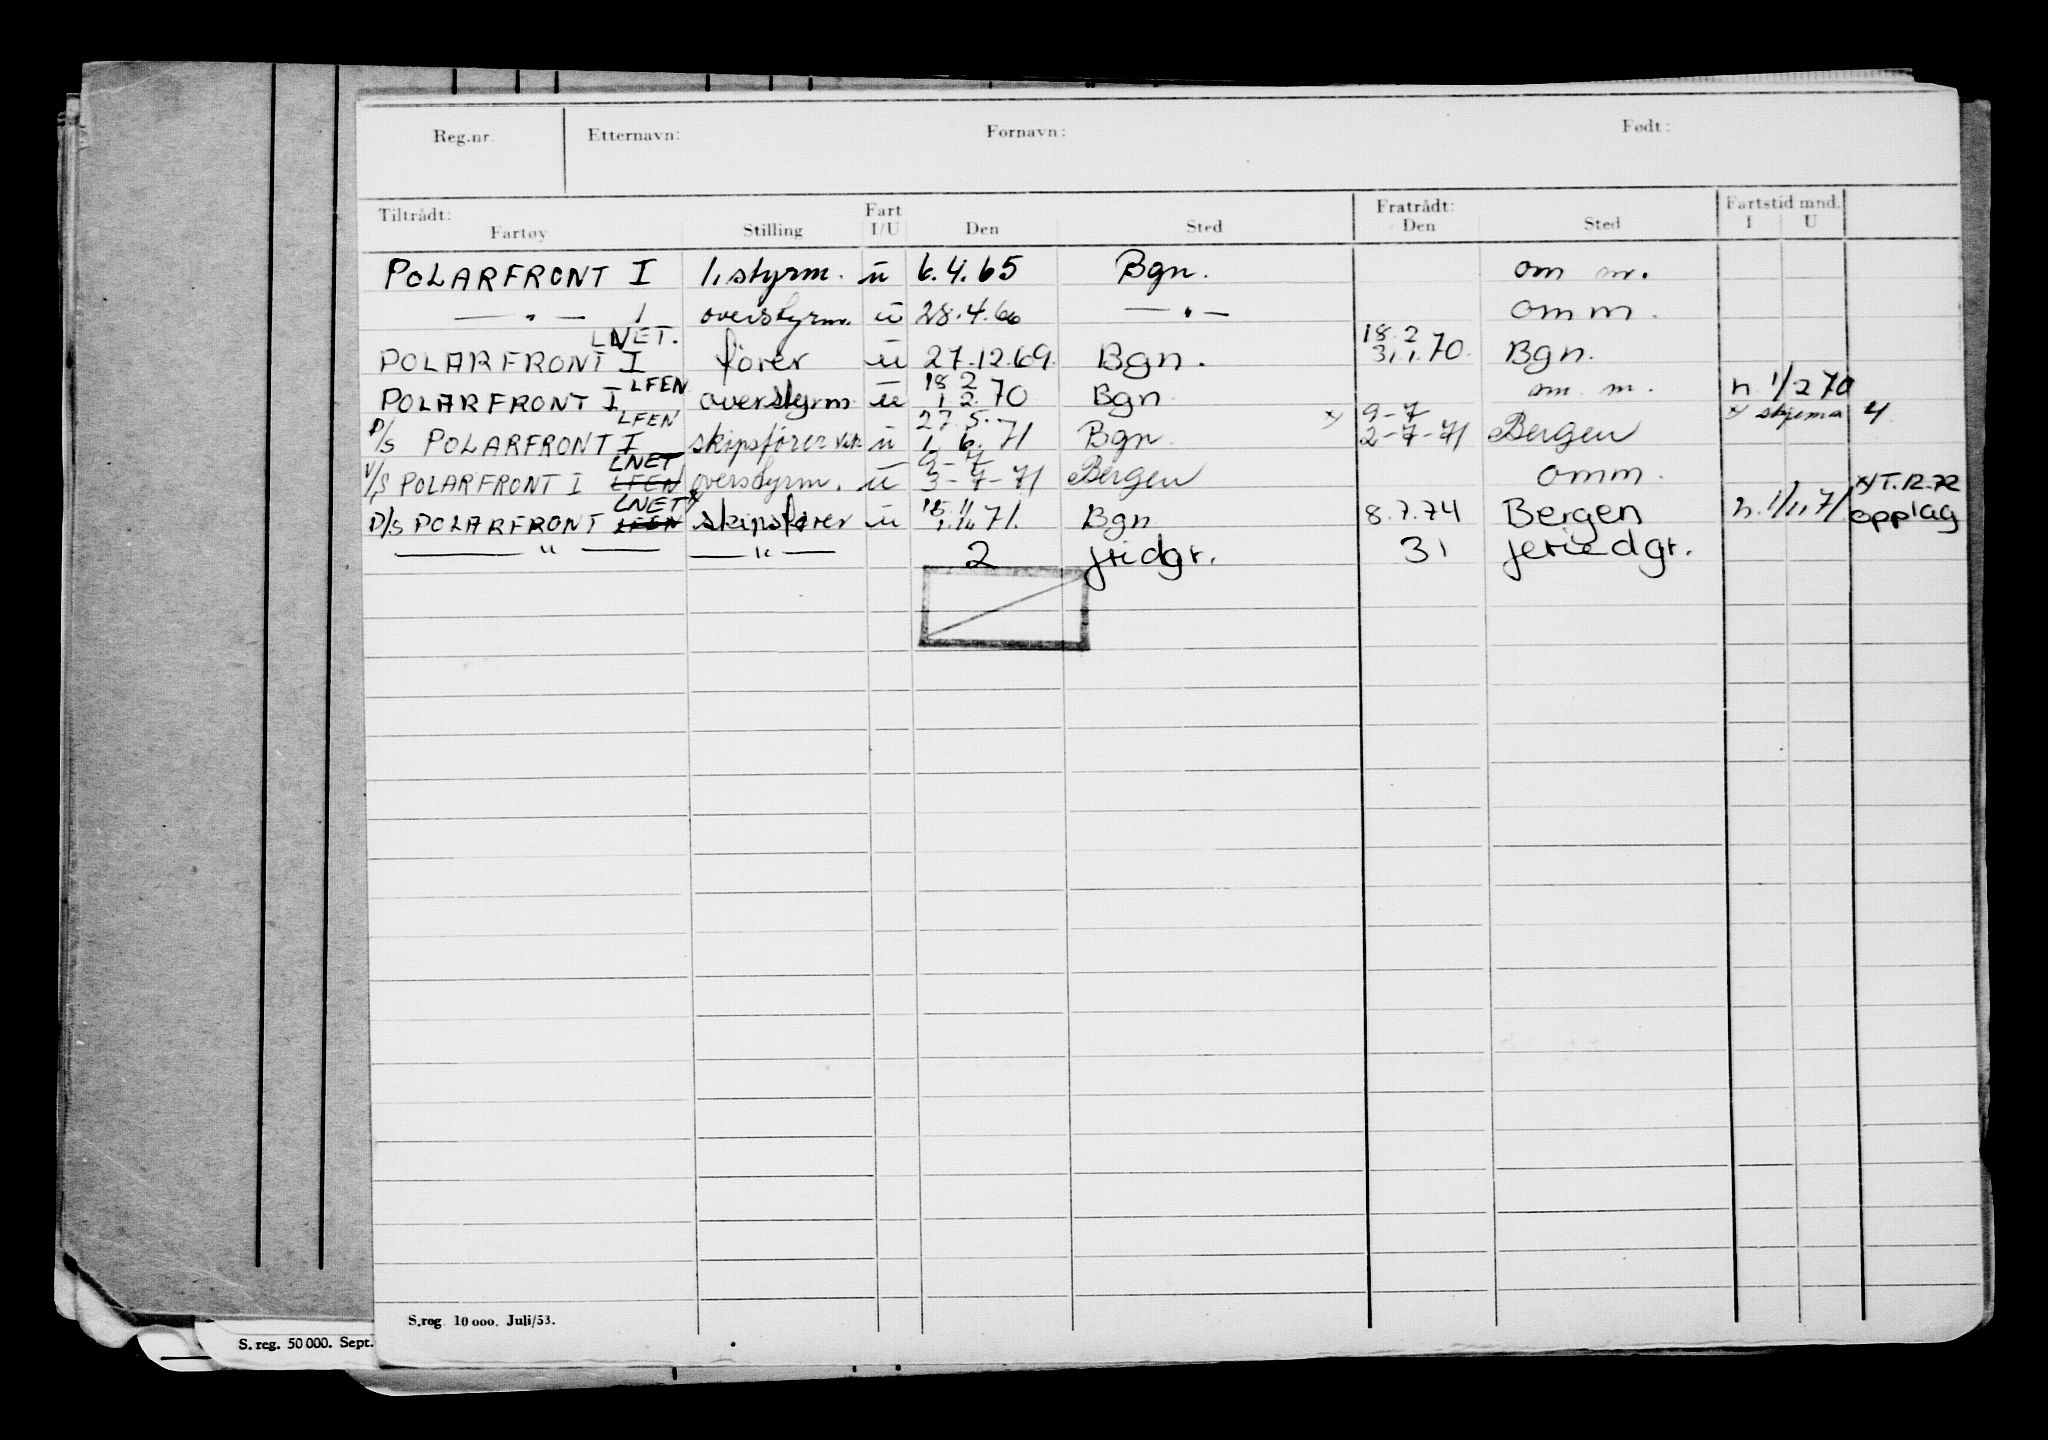 Reg.nr. Etternavn: Fornavn: Født:
Tiltrådt: Fart Fratrådt: Fartstid mnd.
Fartøy Stilling I/U Den Sted Den Sted I U
POLARFRONT I 1. styrm. u 6.4.65 Bgn. om m.
— " — I overstyrm. u 28.4.66 — " — om m.
LNET. 18. 2
POLARFRONT I fører u 27.12.69. Bgn. 31.1.70. Bgn.
LFEN 18 2
POLARFRONT I overstyrm u 1. 2. 70 Bgn om m. n. 1/2 70
LFEN 27. 5. x/ 9-7 x/ skjema 4
D/S POLARFRONT I skipsfører vik u 1. 6. 71 Bgn 2-7-71 Bergen
LNET 9-7
V/S POLARFRONT I LFEN overstyrm. u 3-7-71 Bergen om m.
LNET x/ 15. 11 x/ T.12.72
D/S POLARFRONT LFEN skipsfører u 1.11.71. Bgn 8.7.74 Bergen n. 1/11 71 opplag
— " — — " — 2 fridgr. 31 feriedgr.
S.reg. 10 000. Juli/53.
S. reg. 50 000. Sept.